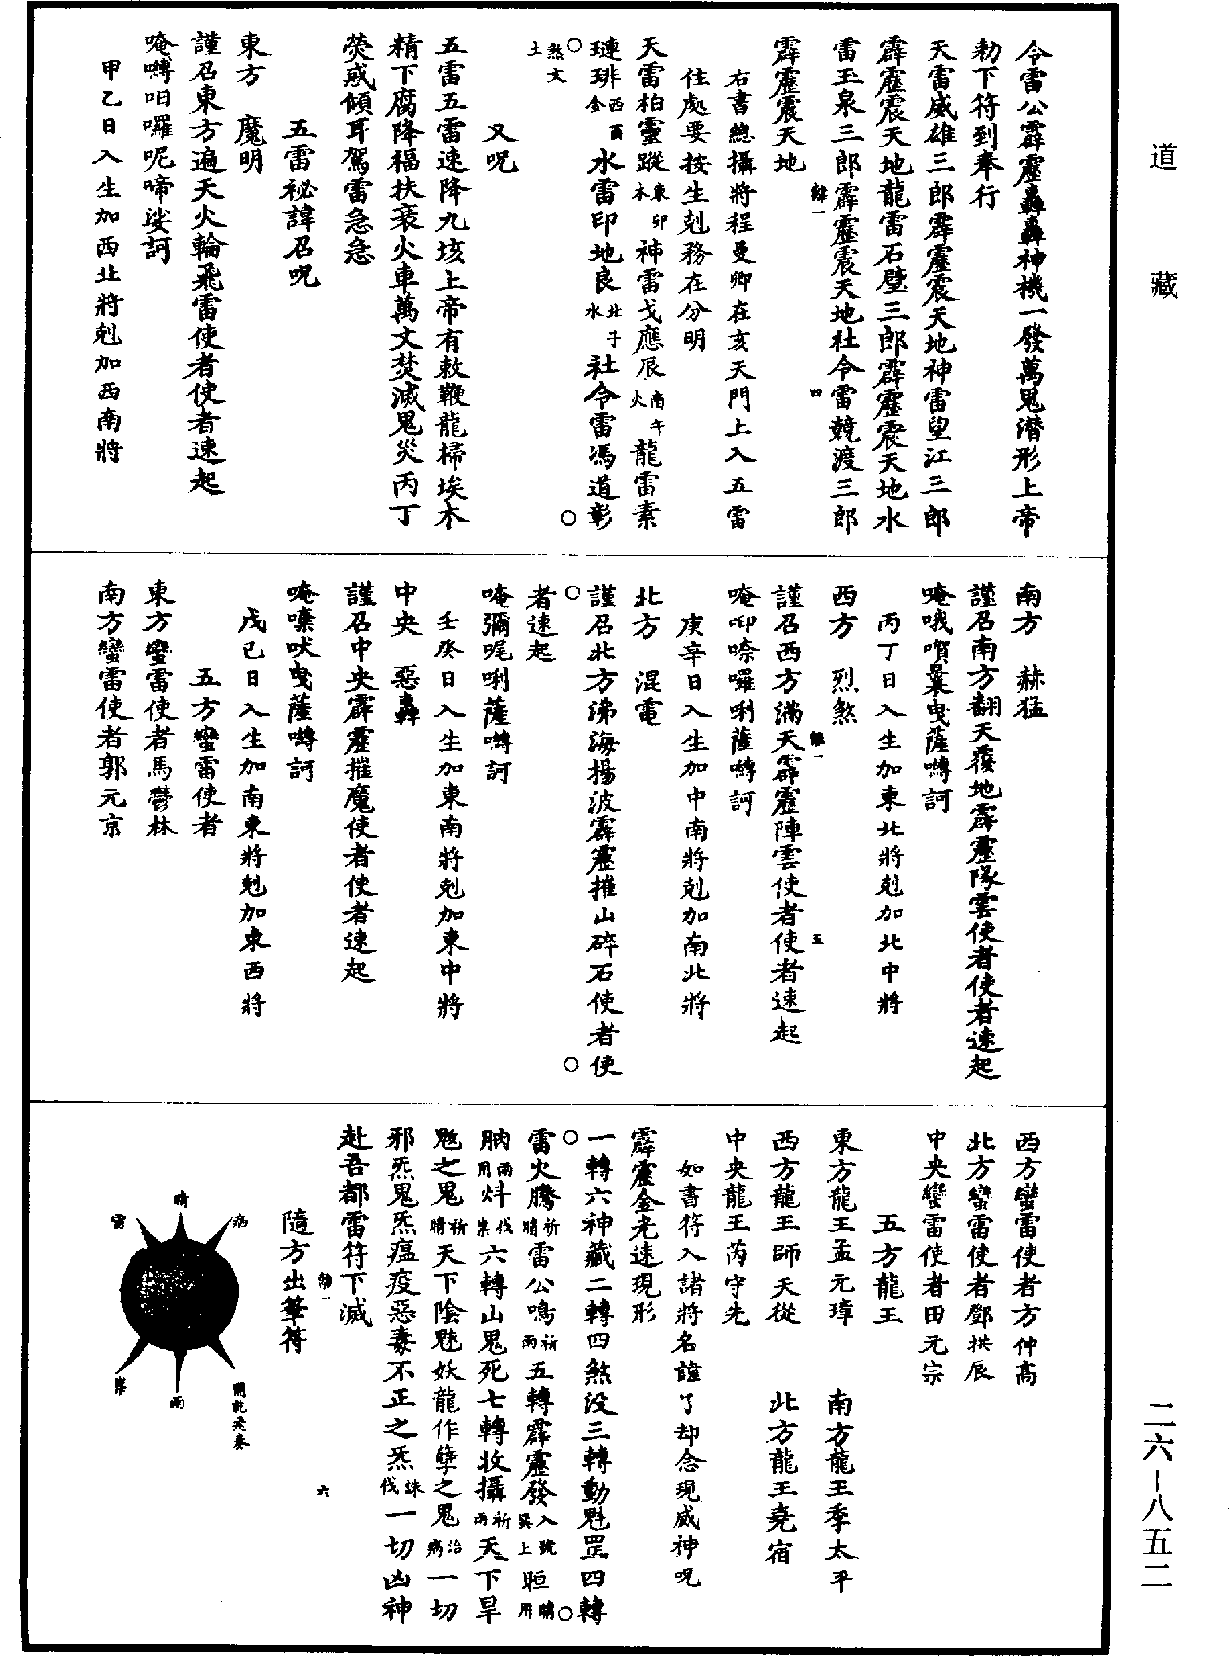 道藏
令雷公霹靂轟轟神機一發萬鬼潛形上帝
勑下符到奉行
天雷威雄三郎霹靂震天地神雷望江三郎
霹靂震天地龍雷石壁三郎霹靂震天地水
雷玉泉三郎霹靂震天地社令雷競渡三郎
霹靂震天地
右書總攝將程曼卿在亥天門上入五雷
住處要按生剋務在分明
天雷柏靈蹤東卯木神雷戈應辰南午火龍雷素
璉琲西酉金水雷印地良北子水社令雷馮道彰
煞文土
又呪
五雷五雷速降九垓上帝有敕鞭龍掃埃木
精下腐降福扶衰火車萬丈焚滅鬼災丙丁
熒惑傾耳駕雷急急
五雷祕諱召呪
東方　魔明
謹召東方遍天火輪飛雷使者使者速起
唵嚩呬囉呢啼娑訶
甲乙日入生加西北將剋加西南將
南方　赫猛
謹召南方翻天覆地霹靂隊雲使者使者速起
唵哦嚬曩曳薩嚩訶
丙丁日入生加東北將剋加北中將
西方　烈煞
謹召西方滿天霹靂陣雲使者使者速起
唵唧㗇囉唎薩嚩訶
庚辛日入生加中南將剋加南北將
北方　混電
謹召北方沸海揚波霹靂摧山碎石使者使
者速起
唵彌呢唎薩嚩訶
壬癸日入生加東南將剋加東中將
中央　惡轟
謹召中央霹靂摧魔使者使者速起
唵㗱吠曳薩嚩訶
戊己日入生加南東將剋加東西將
五方蠻雷使者
東方蠻雷使者馬鬱林
南方蠻雷使者郭元京
西方蠻雷使者方仲高
北方蠻雷使者鄧拱辰
中央蠻雷使者田元宗
五方龍王
東方龍王孟元璋　南方龍王季太平
西方龍王師天從　北方龍王堯宿
中央龍王芮守先
如書符入諸將名諱了却念現威神呪
霹靂金光速現形
一轉六神藏二轉四煞沒三轉動魁罡四轉
雷火騰祈晴雷公鳴祈雨五轉霹靂發入號巽上晅晴用
䏧雨用炓伐祟六轉山鬼死七轉收攝祈雨天下旱
魃之鬼祈晴天下陰魅妖龍作孽之鬼治病一切
邪炁鬼炁瘟疫惡毒不正之炁誅伐一切凶神
赴吾都雷符下滅
隨方出筆符
病
晴
雷
祟
雨
二六—八五二